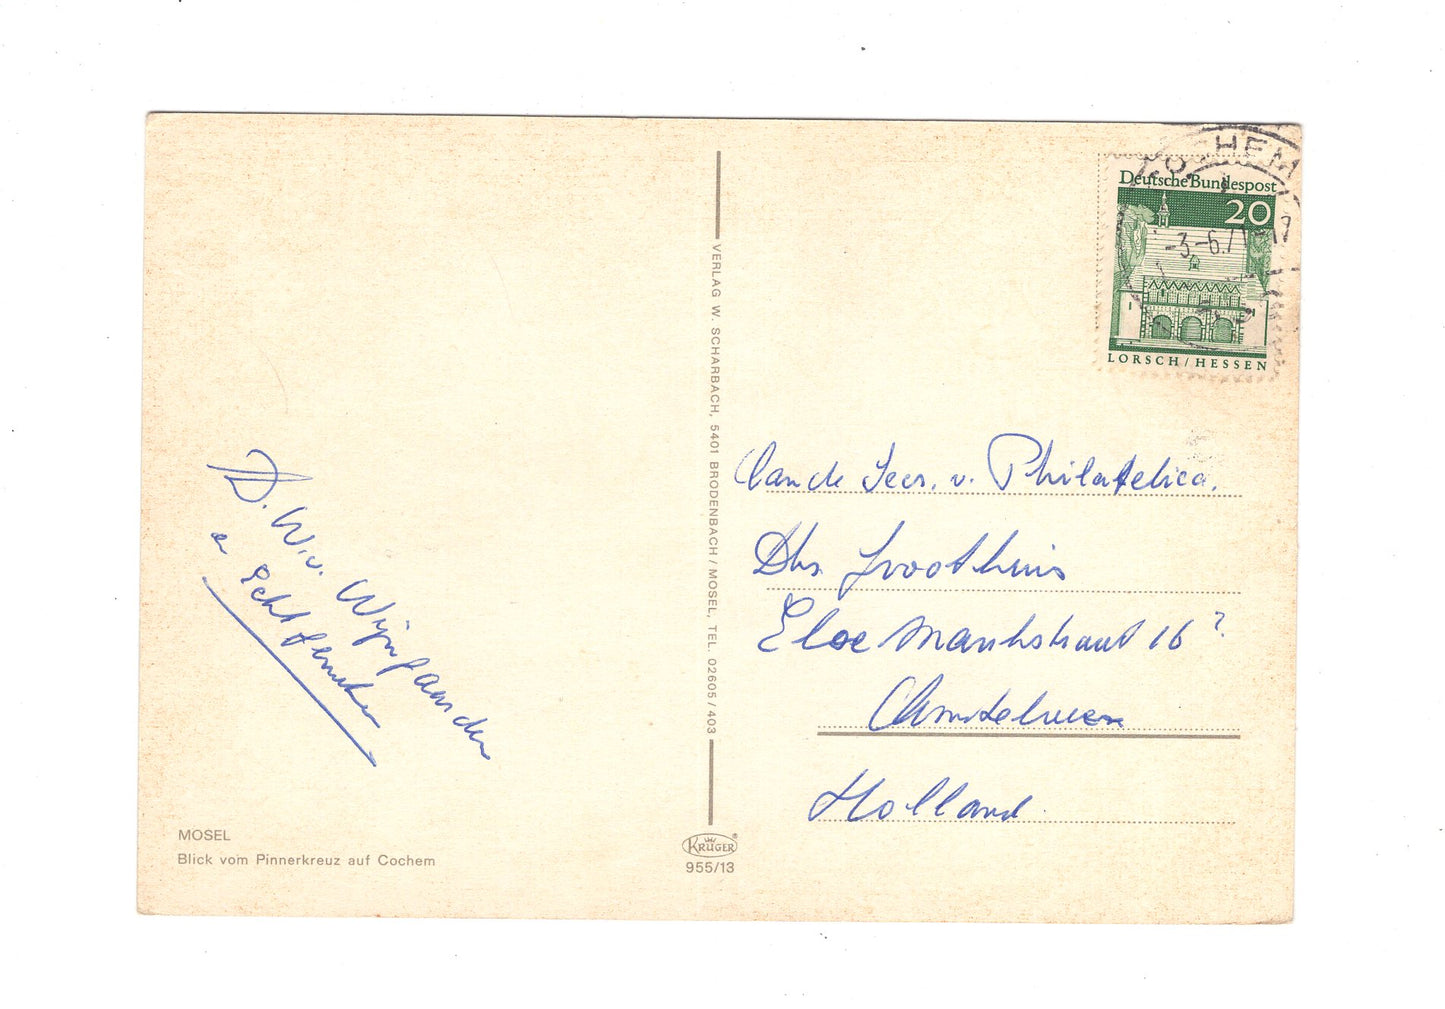 COCHEM
-3.-6.71-17
Deutsche Bundespost
20
LORSCH/HESSEN
VERLAG W. SCHARBACH, 5401 BRODENBACH / MOSEL, TEL. 02605 / 403
D. W. v. Wijngaarden
en Echtgenoten
Aan de Secr. v. Philatelica.
Dhr Groothuis
Markstraat 16?
Amstelveen
Holland
MOSEL
Blick vom Pinnerkreuz auf Cochem
KRÜGER
955/13